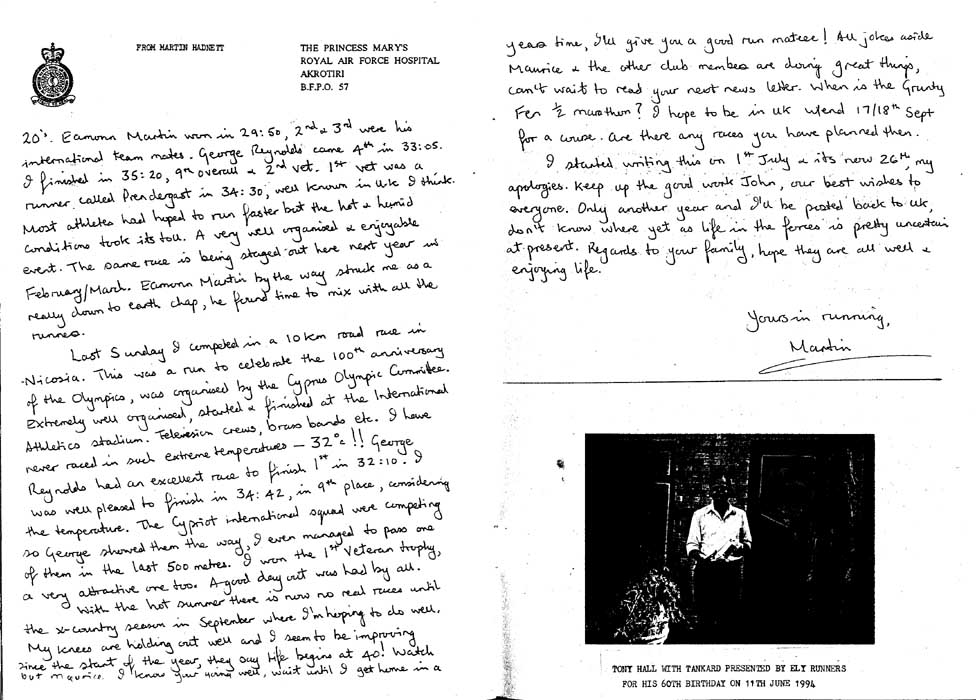 FROM MARTIN HADNETT
THE PRINCESS MARY'S
ROYAL AIR FORCE HOSPITAL
AKROTIRI
B.F.P.O. 57
20's. Eamonn Martin won in 29:50, 2nd & 3rd were his
international team mates. George Reynolds came 4th in 33:05.
I finished in 35:20, 9th overall & 2nd vet. 1st vet was a
runner called Prendergast in 34:30, well known in U.K I think.
Most athletes had hoped to run faster but the hot & humid
conditions took its toll. A very well organised & enjoyable
event. The same race is being staged out here next year in
February/March. Eamonn Martin by the way struck me as a
really down to earth chap, he found time to mix with all the
runners.
Last Sunday I competed in a 10km road race in
Nicosia. This was a run to celebrate the 100th anniversary
of the Olympics, was organised by the Cyprus Olympic Committee.
Extremely well organised, started & finished at the International
Athletics stadium. Television crews, brass bands etc. I have
never raced in such extreme temperatures – 32°c!! George
Reynolds had an excellent race to finish 1st in 32:10. I
was well pleased to finish in 34:42, in 9th place, considering
the temperature. The Cypriot international squad were competing
so George showed them the way, I even managed to pass one
of them in the last 500 metres. I won the 1st Veteran trophy,
a very attractive one too. A good day out was had by all.
With the hot summer there is now no real races until
the x-country season in September where I'm hoping to do well.
My knees are holding out well and I seem to be improving
since the start of the year, they say life begins at 40! Watch
out Maurice. I know your going well, wait until I get home in a
years time, I'll give you a good run mateee! All jokes aside
Maurice & the other club members are doing great things,
can't wait to read your next news letter. When is the Grunty
Fen ½ marathon? I hope to be in UK w/end 17/18th Sept
for a course. Are there any races you have planned then.
I started writing this on 1st July & its now 26th, my
apologies. Keep up the good work John, our best wishes to
everyone. Only another year and I'll be posted back to UK,
don't know where yet as life in the forces is pretty uncertain
at present. Regards to your family, hope they are all well &
enjoying life.
Yours in running,
Martin
TONY HALL WITH TANKARD PRESENTED BY ELY RUNNERS
FOR HIS 60TH BIRTHDAY ON 11TH JUNE 1994